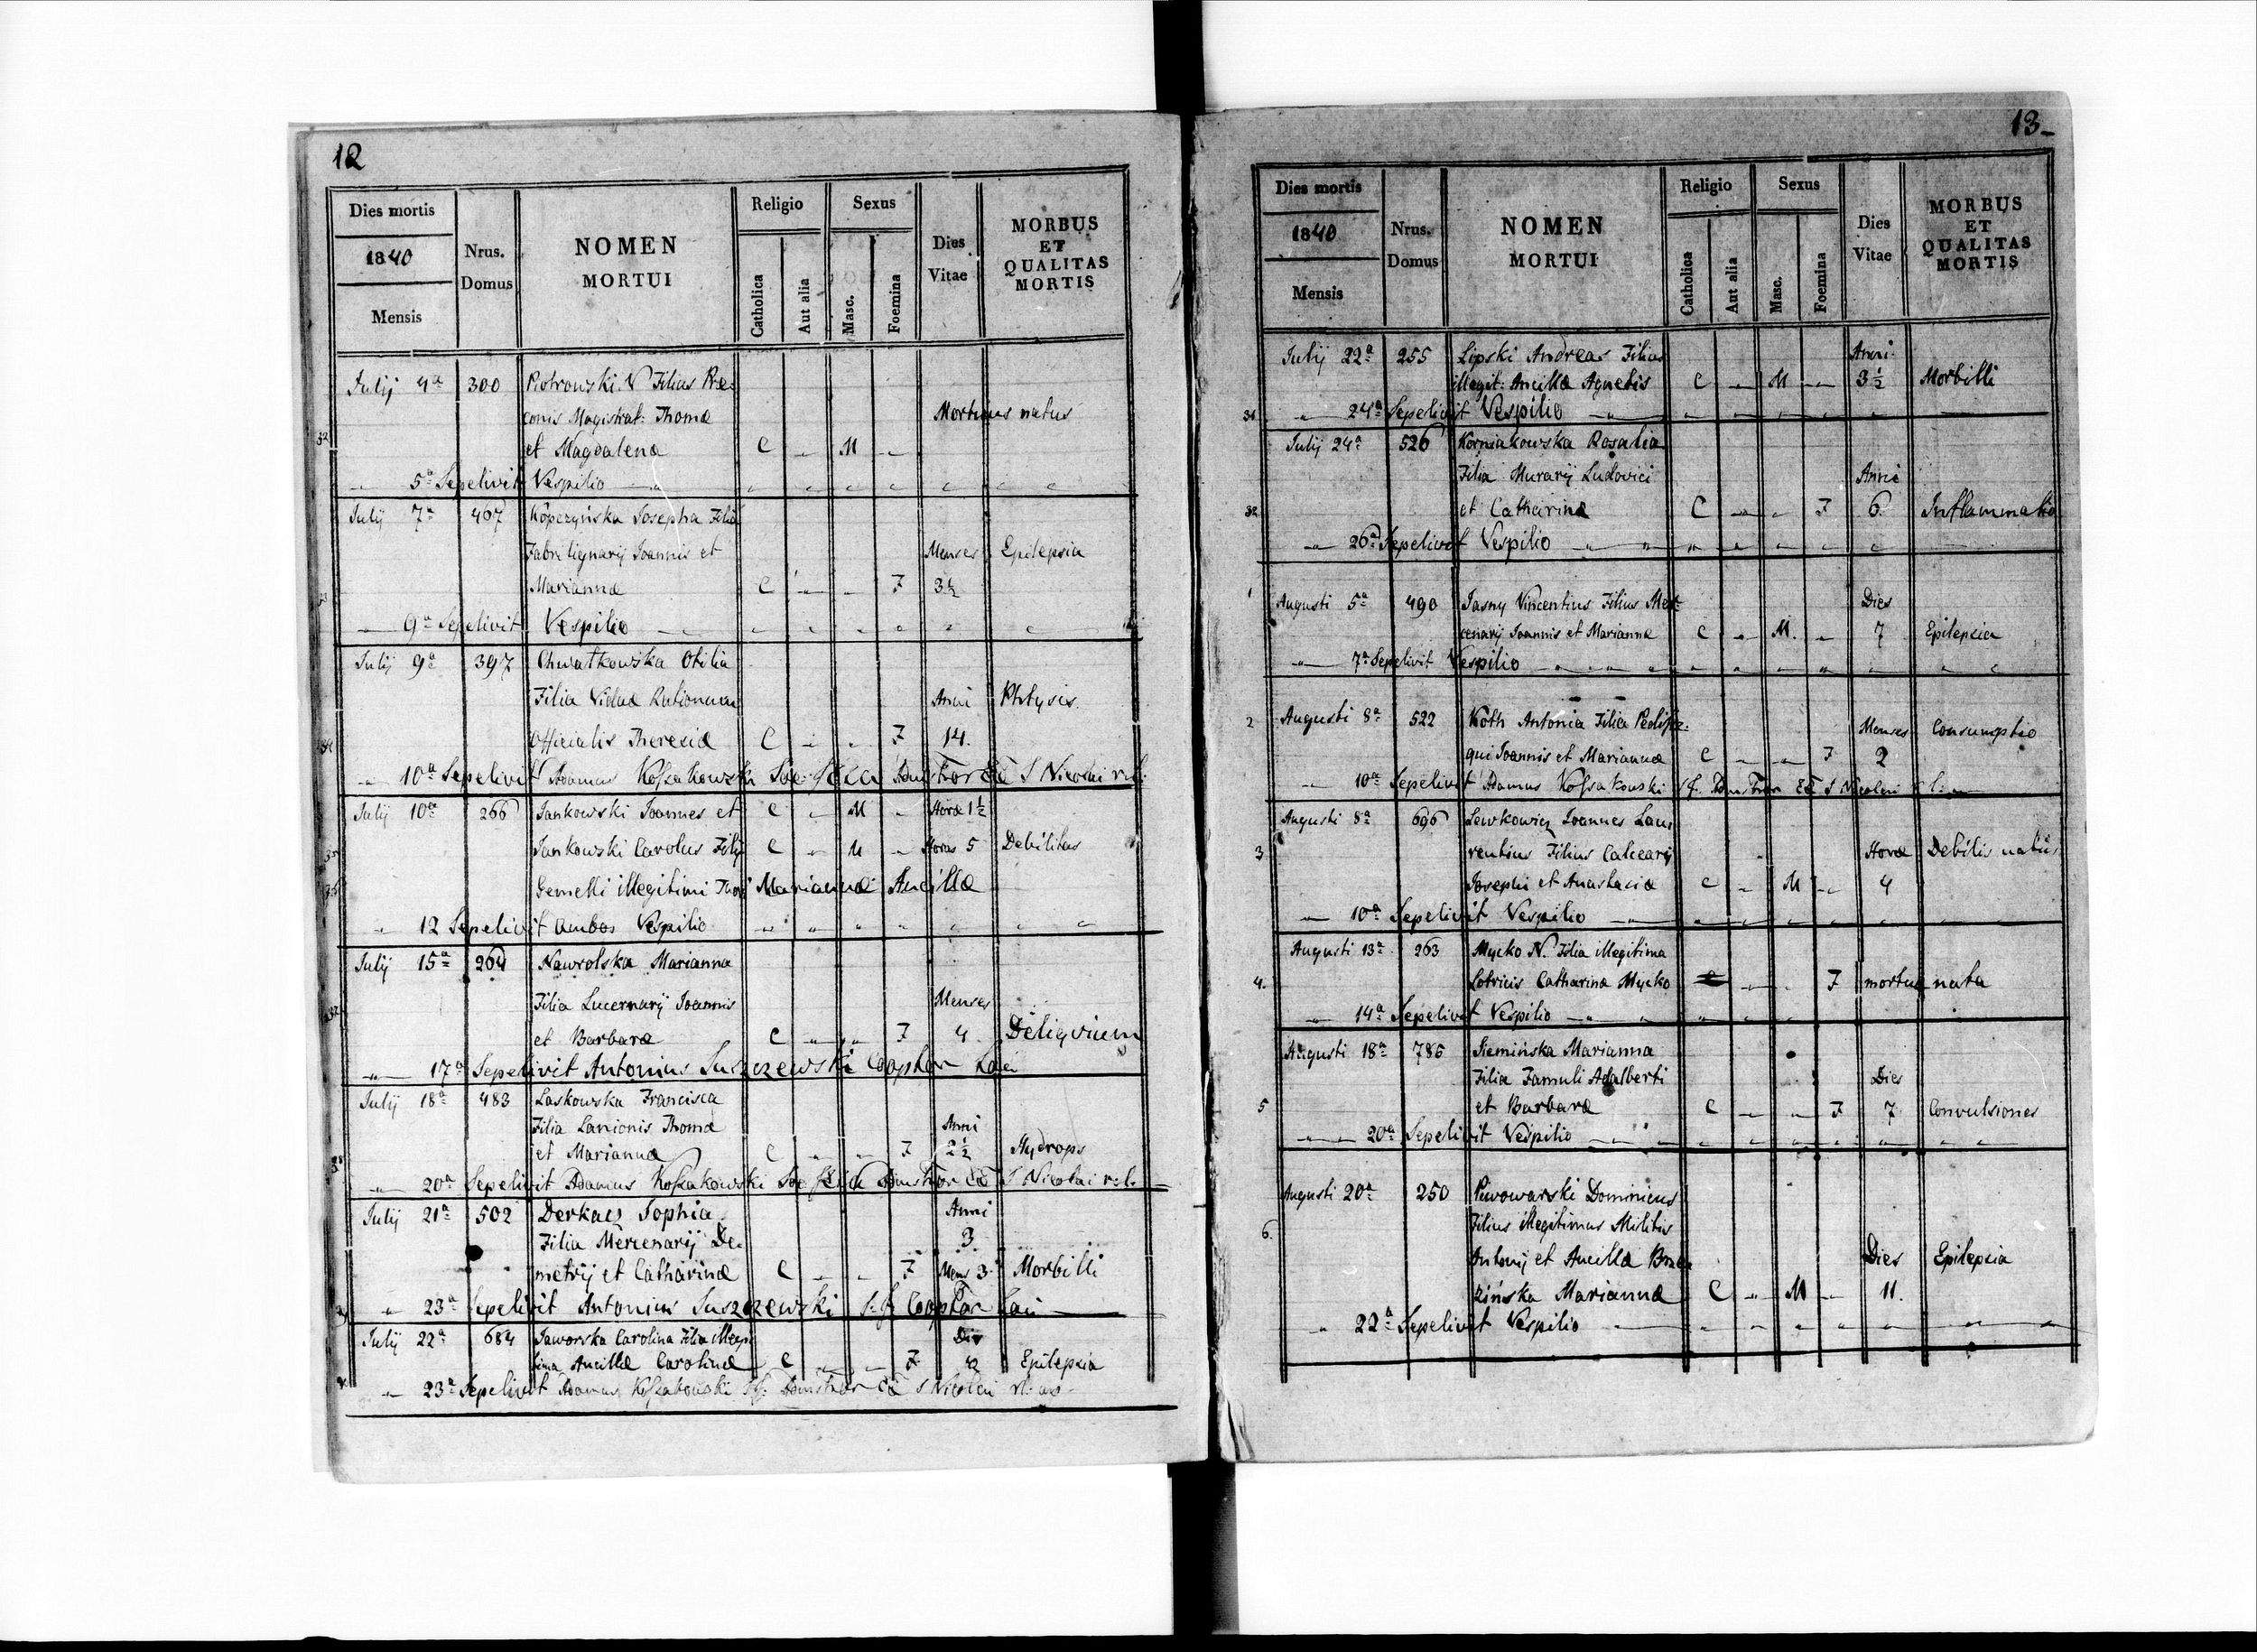 12
Dies mortis
1840
Mensis
Nrus. Domus
NOMEN MORTUI
Religio
Catholica
Aut alia
Sexus
Masc.
Foemina
Dies Vitae
MORBUS ET QUALITAS MORTIS
July 4a 300 Piotrowski N Filius Præ:
conis Magistrat: Thomæ Mortuus natus
et Magdalena C „ M „
„ 5a Sepelivit Vespilio
July 7a 467 Kopczyńska Josepha Filia
Fabri lignarij Joannis et Menses Epilepsia
Mariannæ C „ „ F 3½
„ 9a Sepelivit Vespilio
July 9a 397 Chwatkowska Otilia
Filia Viduæ Anni Phtysis
Officialis Theresiæ C „ „ F 14.
„ 10a Sepelivit Adamus Kossakowski S Nicolai
July 10a 266 Jankowski Joannes et C „ M „ Horæ 1½
Jankowski Carolus Filij C „ M „ Horas 5 Debilitas
Gemelli illegitimi Mariannæ Ancillæ
„ 12 Sepelivit Ambos Vespilio
July 15a 264 Nawrolska Marianna
Filia Lucernarij Joannis Menses
et Barbaræ C „ „ F 4 Deliqvium
„ 17a Sepelivit Antonius Suszczewski Cooptor
July 18a 483 Laskowska Francisca
Filia Lanionis Thomæ Anni
et Mariannæ C „ „ F 2½ Hydrops
„ 20a Sepelivit Adamus Kossakowski S Nicolai r.l.
July 21a 502 Derkacz Sophia Anni
Filia Mercenarij De- 3
metrij et Catharinæ C „ „ F Mens 3 Morbilli
„ 23a Sepelivit Antonius Suszczewski Cooptor
July 22a 684 Jaworska Carolina Filia illegi
tima Ancillæ Carolinæ C „ „ F Epilepsia
„ 23a Sepelivit Adamus Kossakowski S Nicolai
13
Dies mortis
1840
Mensis
Nrus. Domus
NOMEN MORTUI
Religio
Catholica
Aut alia
Sexus
Masc.
Foemina
Dies Vitae
MORBUS ET QUALITAS MORTIS
July 22a 255 Lipski Andreas Filius Anni
illegit: Ancillæ Agnetis C „ M „ 3½ Morbilli
31 „ 24a Sepelivit Vespilio
July 24a 526 Korniakowska Rosalia
Filia Murarij Ludovici Anni
32 et Catharinæ C „ „ F 6 Inflammatio
„ 26a Sepelivit Vespilio
1 Augusti 5a 490 Jasny Vincentius Filius Mer- Dies
cenarij Joannis et Mariannæ C „ M. „ 7 Epilepsia
„ 7a Sepelivit Vespilio
2 Augusti 8a 522 Koth Antonia Filia Pedisse- Menses Consumptio
qui Joannis et Mariannæ C „ „ F 2
„ 10a Sepelivit Adamus Kossakowski S Nicolai
Augusti 8a 696 Lewkowicz Joannes Lau
3 rentius Filius Calcearij Horæ Debilis natus
Josephi et Anastasiæ C „ M „ 4
„ 10a Sepelivit Vespilio
Augusti 13a 263 Mycko N. Filia illegitima
4. Lotricis Catharinæ Mycko C „ „ F mortua nata
„ 14a Sepelivit Vespilio
Augusti 18a 786 Siemińska Marianna
Filia Famuli Adalberti Dies
5 et Barbaræ C „ „ F 7 Convulsiones
„ 20a Sepelivit Vespilio
Augusti 20a 250 Piwowarski Dominicus
6. Filius illegitimus Militis
Antonij et Ancillæ Brze Dies Epilepsia
zińska Mariannæ C „ M „ 11.
„ 22a Sepelivit Vespilio